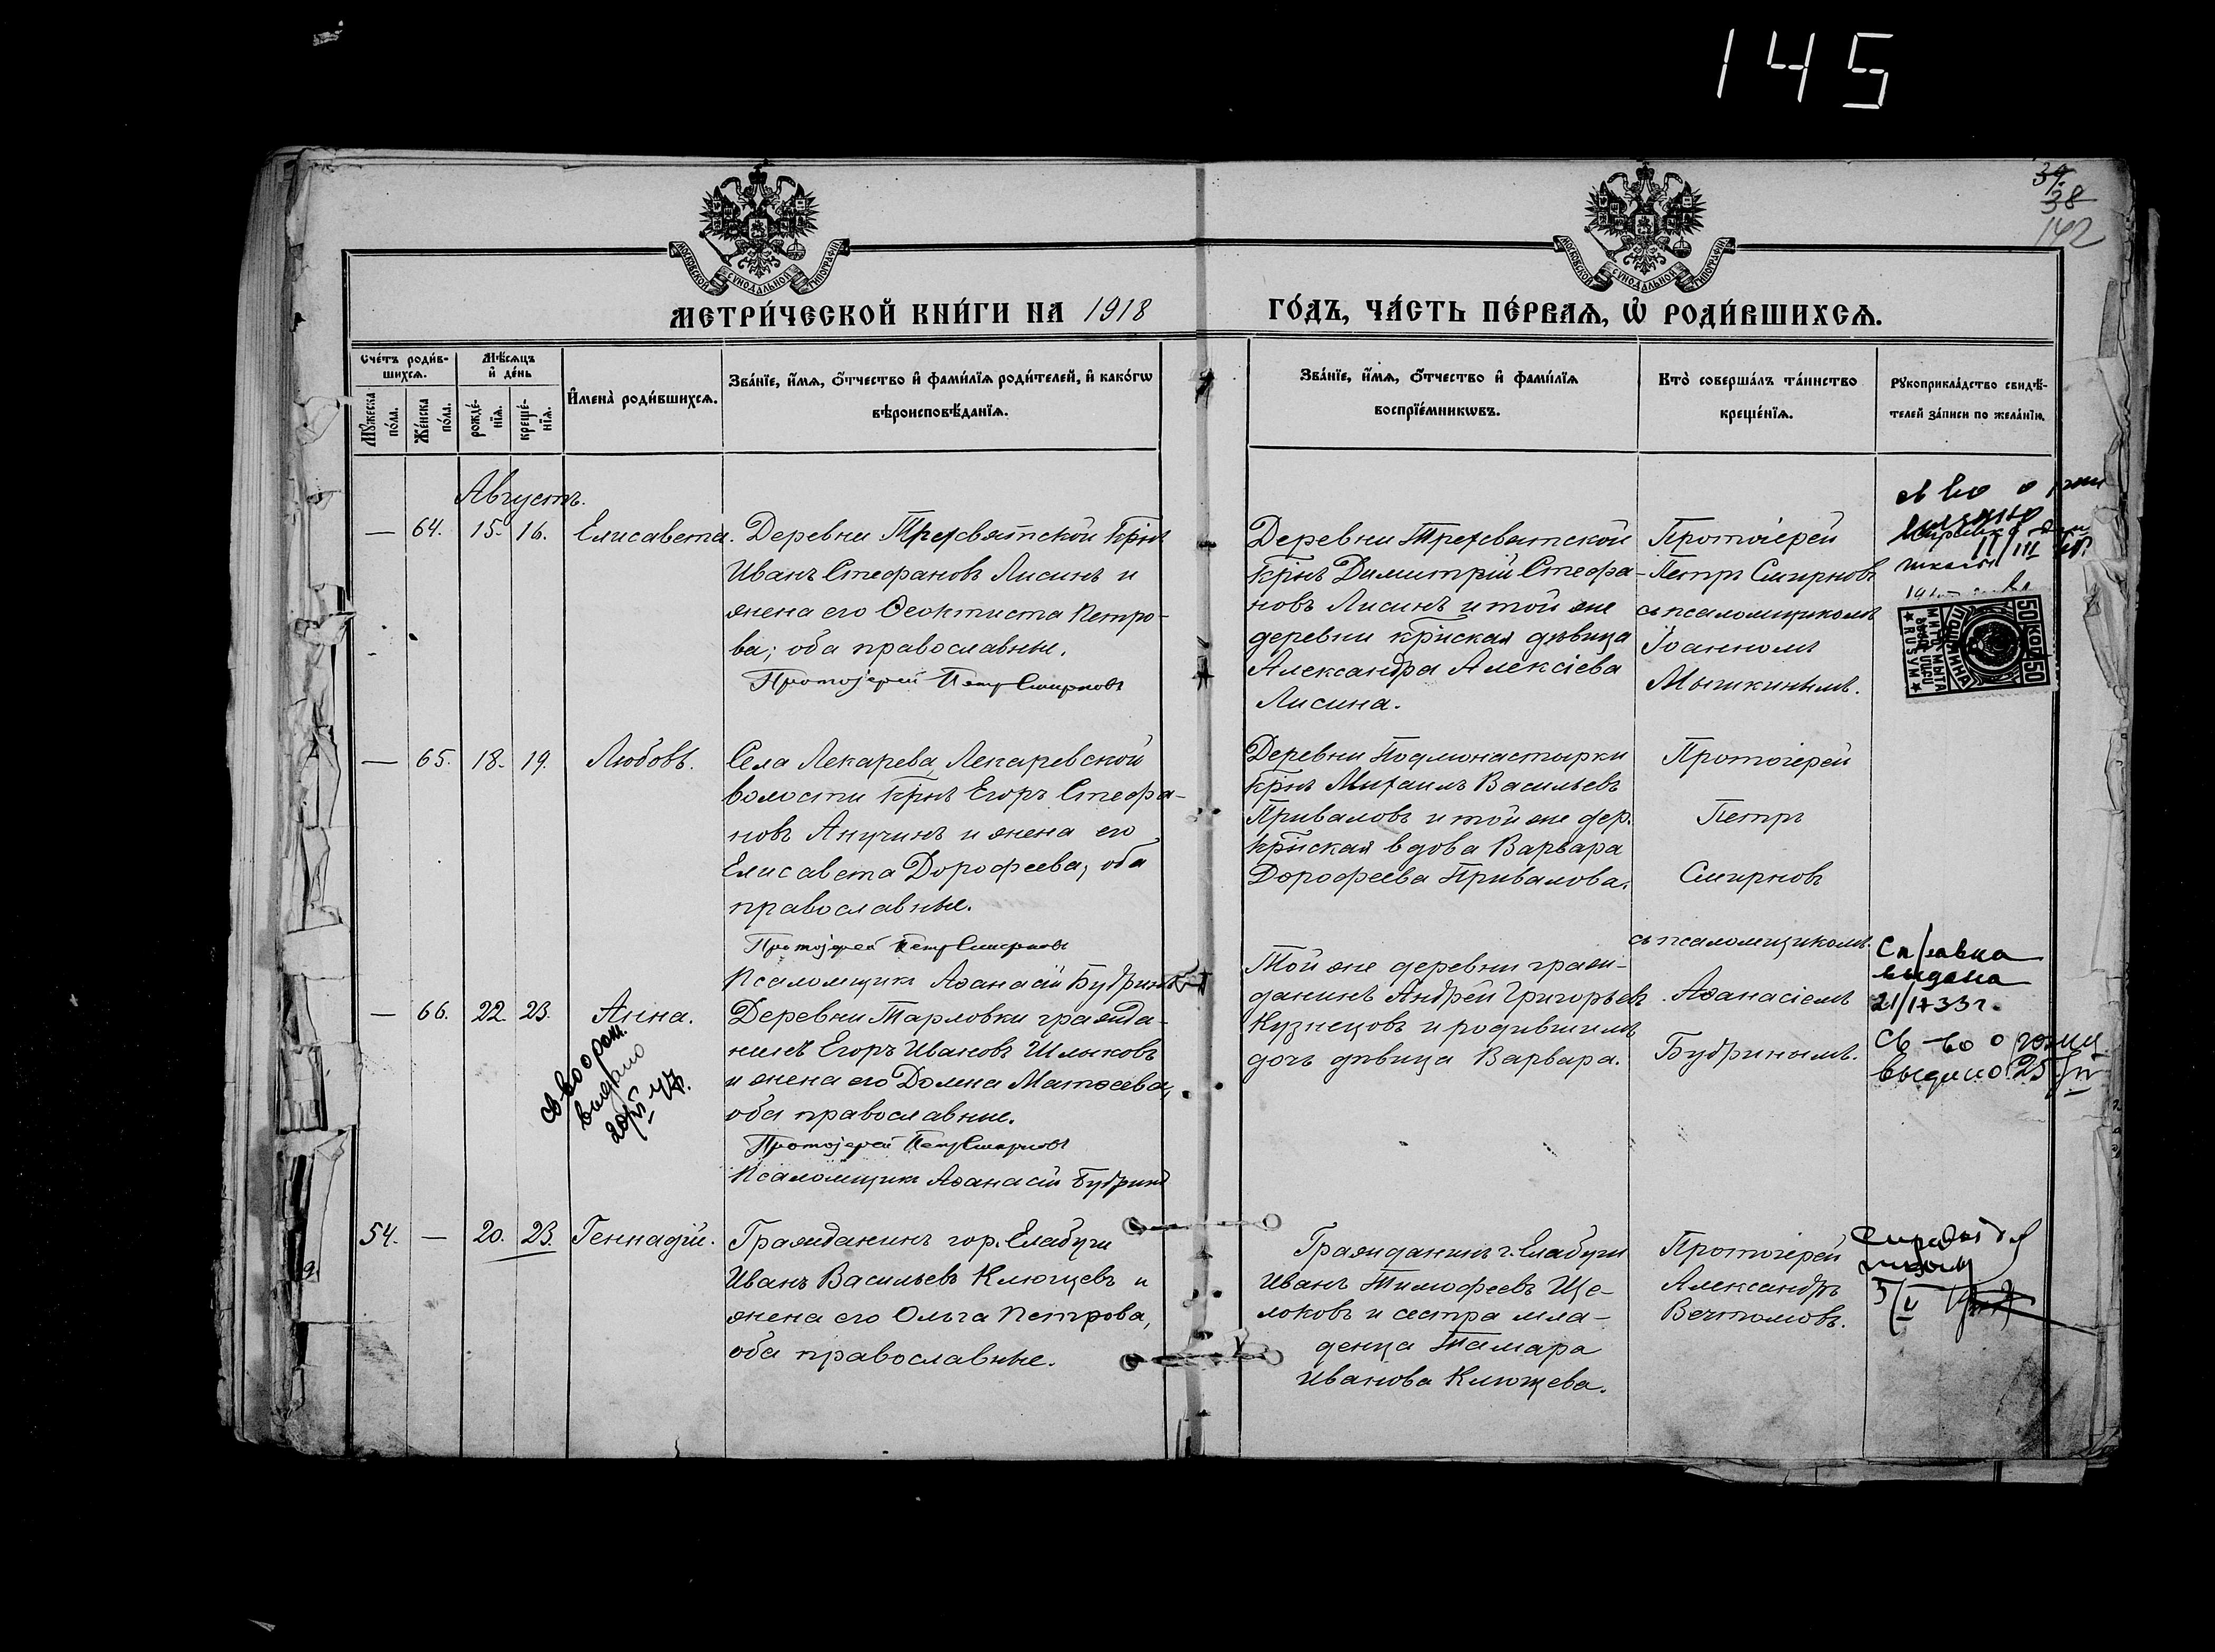 145
39.
38
142
МОСКОВСКОЙ СѴНОДАЛЬНОЙ ТИПОГРАФІИ
МОСКОВСКОЙ СѴНОДАЛЬНОЙ ТИПОГРАФІИ
МЕТРИ́ЧЕСКОЙ КНИ́ГИ НА 1918
ГО́ДЪ, ЧА́СТЬ ПЕ́РВАЯ, Ѡ РОДИ́ВШИХСЯ.
Сче́тъ роди́в-
шихся.
Мѣ́сяцъ
и де́нь
Мꙋ́жеска
по́ла.
Же́нска
по́ла.
рожде́-
нїя.
креще́-
нїя.
Имена̀ роди́вшихся.
Зва́нїе, и́мя, о́тчество и фами́лїя роди́телей, и како́гѡ
вѣроисповѣ́данїя.
Зва́нїе, и́мя, о́тчество и фами́лїя
воспрїе́мникѡвъ.
Кто̀ соверша́лъ та́инство
креще́нїя.
Рꙋкоприкла́дство свидѣ́-
телей за́писи по жела́нїю.
Августъ.
— 64. 15. 16. Елисавета.
Деревни Трехсвятской Крнъ
Иванъ Стефановъ Лисинъ и
жена его Ѳеоктиста Петро-
ва; оба православные.
Протоіерей Петръ Смирновъ
Деревни Трехсвятской
Крнъ Димитрій Стефа-
новъ Лисинъ и той же
деревни крнская дѣвица
Александра Алексіева
Лисина.
Протоіерей
Петръ Смирновъ
съ псаломщикомъ
Іоанномъ
Мышкинымъ.
св во о
11/III
50 КОП 50
ПОШЛИНА
— 65. 18. 19. Любовь.
Села Лекарева, Лекаревской
волости крнъ Егоръ Стефа-
новъ Анучинъ и жена его
Елисавета Дорофеева, оба
православные.
Протоіерей Петръ Смирновъ
Псаломщикъ Аѳанасій Будринъ
Деревни Подмонастырки
Крнъ Михаилъ Васильевъ
Приваловъ и той же дер.
крнская вдова Варвара
Дорофеева Привалова.
Протоіерей
Петръ
Смирновъ
съ псаломщикомъ
Аѳанасіемъ
Будринымъ.
— 66. 22. 23. Анна.
св во о рож.
выдано
Деревни Тарловки гражда-
нинъ Егоръ Ивановъ Шлыковъ
и жена его Домна Матѳеева,
оба православные.
Протоіерей Петръ Смирновъ
Псаломщикъ Аѳанасій Будринъ
Той же деревни граж-
данинъ Андрей Григорьевъ
Кузнецовъ и родившимъ
дочь дѣвица Варвара.
Справка
выдана
св-во о рожд
выдано 25/IV
54. — 20. 23. Геннадій.
Гражданинъ гор. Елабуги
Иванъ Васильевъ Клющевъ и
жена его Ольга Петрова,
оба православные.
Гражданинъ г. Елабуги
Иванъ Тимофеевъ Ще-
локовъ и сестра мла-
денца Тамара
Иванова Клющева.
Протоіерей
Александръ
Вечтомовъ.
школы